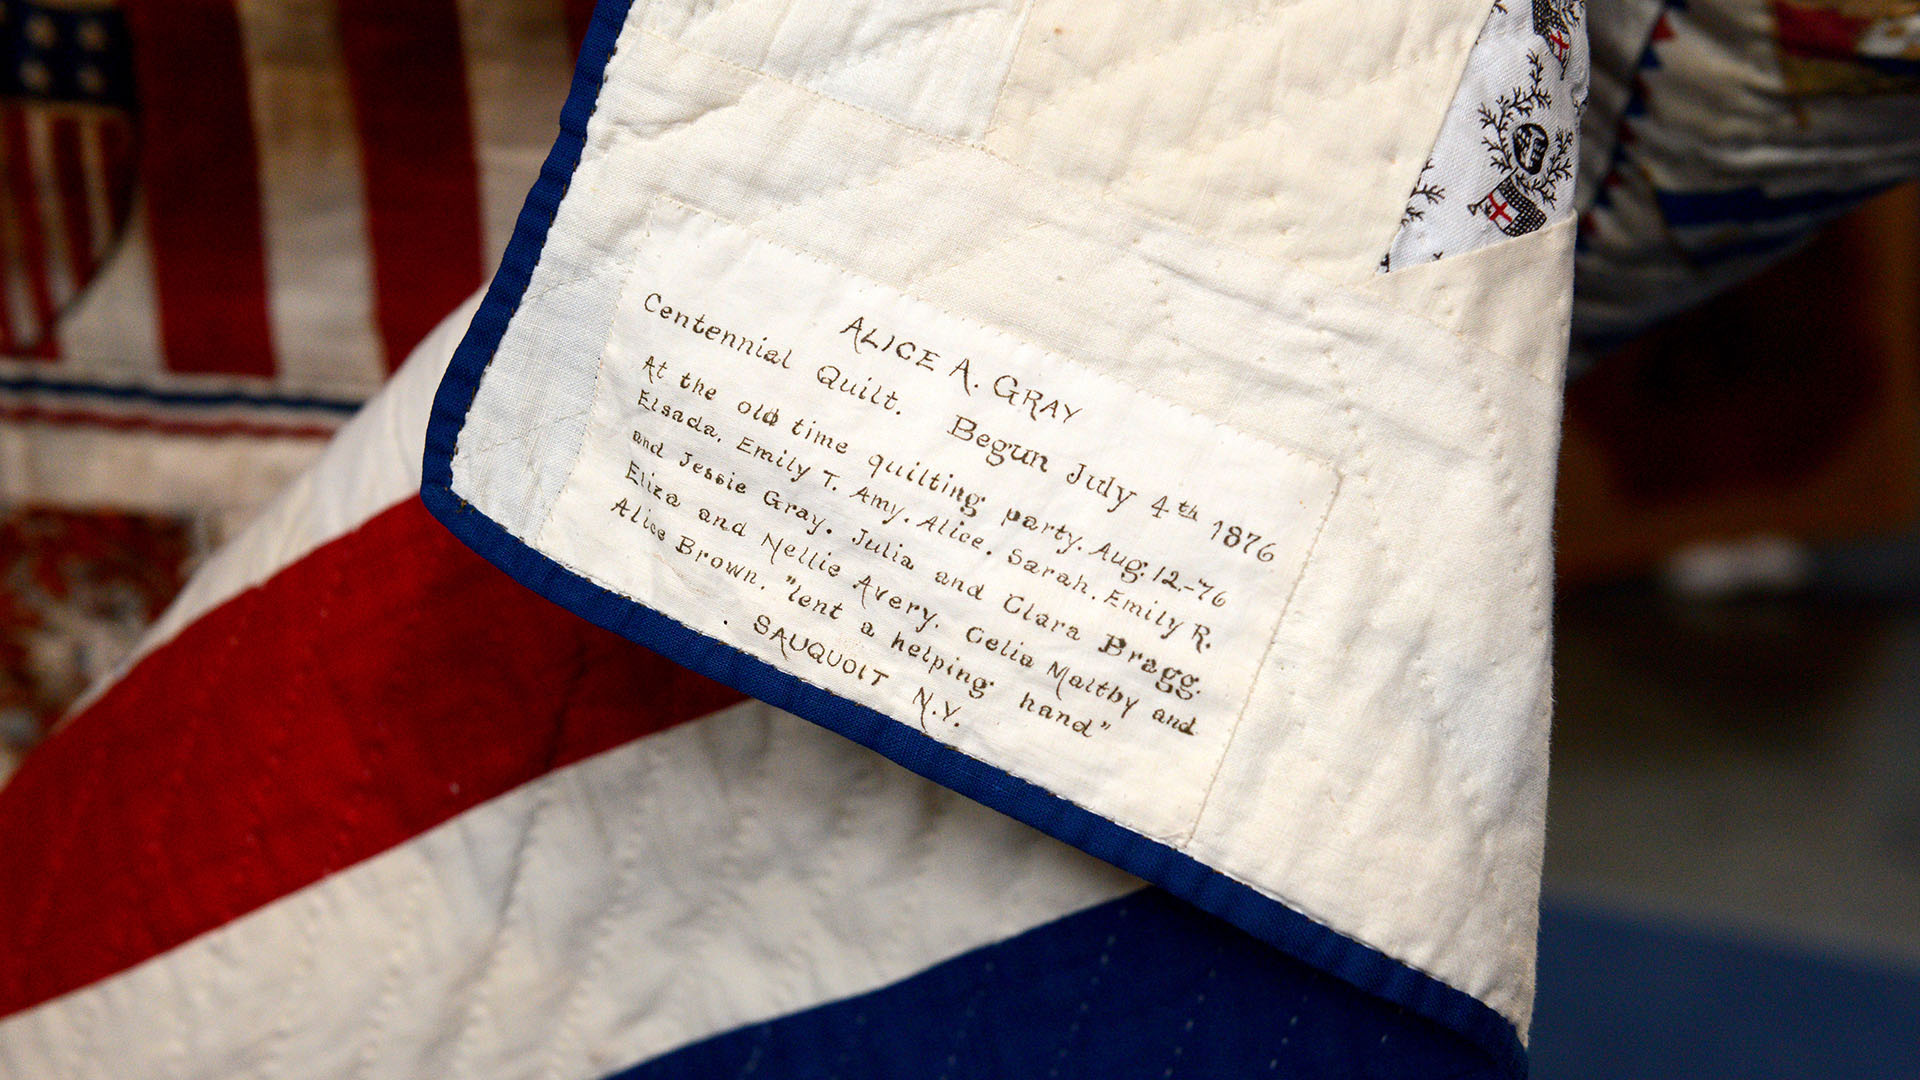 ALICE A. GRAY
Centennial Quilt. Begun July 4th 1876
At the old time quilting party. Aug. 12.-76
Elsada. Emily T. Amy. Alice. Sarah. Emily R.
and Jessie Gray. Julia and Clara Bragg.
Eliza and Nellie Avery. Celia Maltby and
Alice Brown. "lent a helping hand"
. SAUQUOIT N.Y.